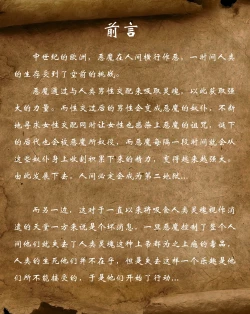 前言
中世纪的欧洲，恶魔在人间横行作恶，一时间人类
的生存受到了空前的挑战。
恶魔通过与人类男性交配来吸取灵魂，以此获取强
大的力量。而性交过后的男性会变成恶魔的奴仆，不断
地寻求女性交配同时让女性也感染上恶魔的诅咒，诞下
的后代也会被恶魔所奴役，而恶魔每隔一段时间就会从
这些奴仆身上收割积累下来的精力，变得越来越强大。
由此发展下去，人间必定会成为第二地狱…
而另一边，这对于一直以来将吸食人类灵魂视作消
遣的天堂一方来说是个坏消息。一旦恶魔控制了整个人
间他们就失去了人类灵魂这种上帝都为之上瘾的毒品，
人类的生死他们并不在乎，但是失去这样一个乐趣是他
们所不能接受的，于是他们开始了行动…